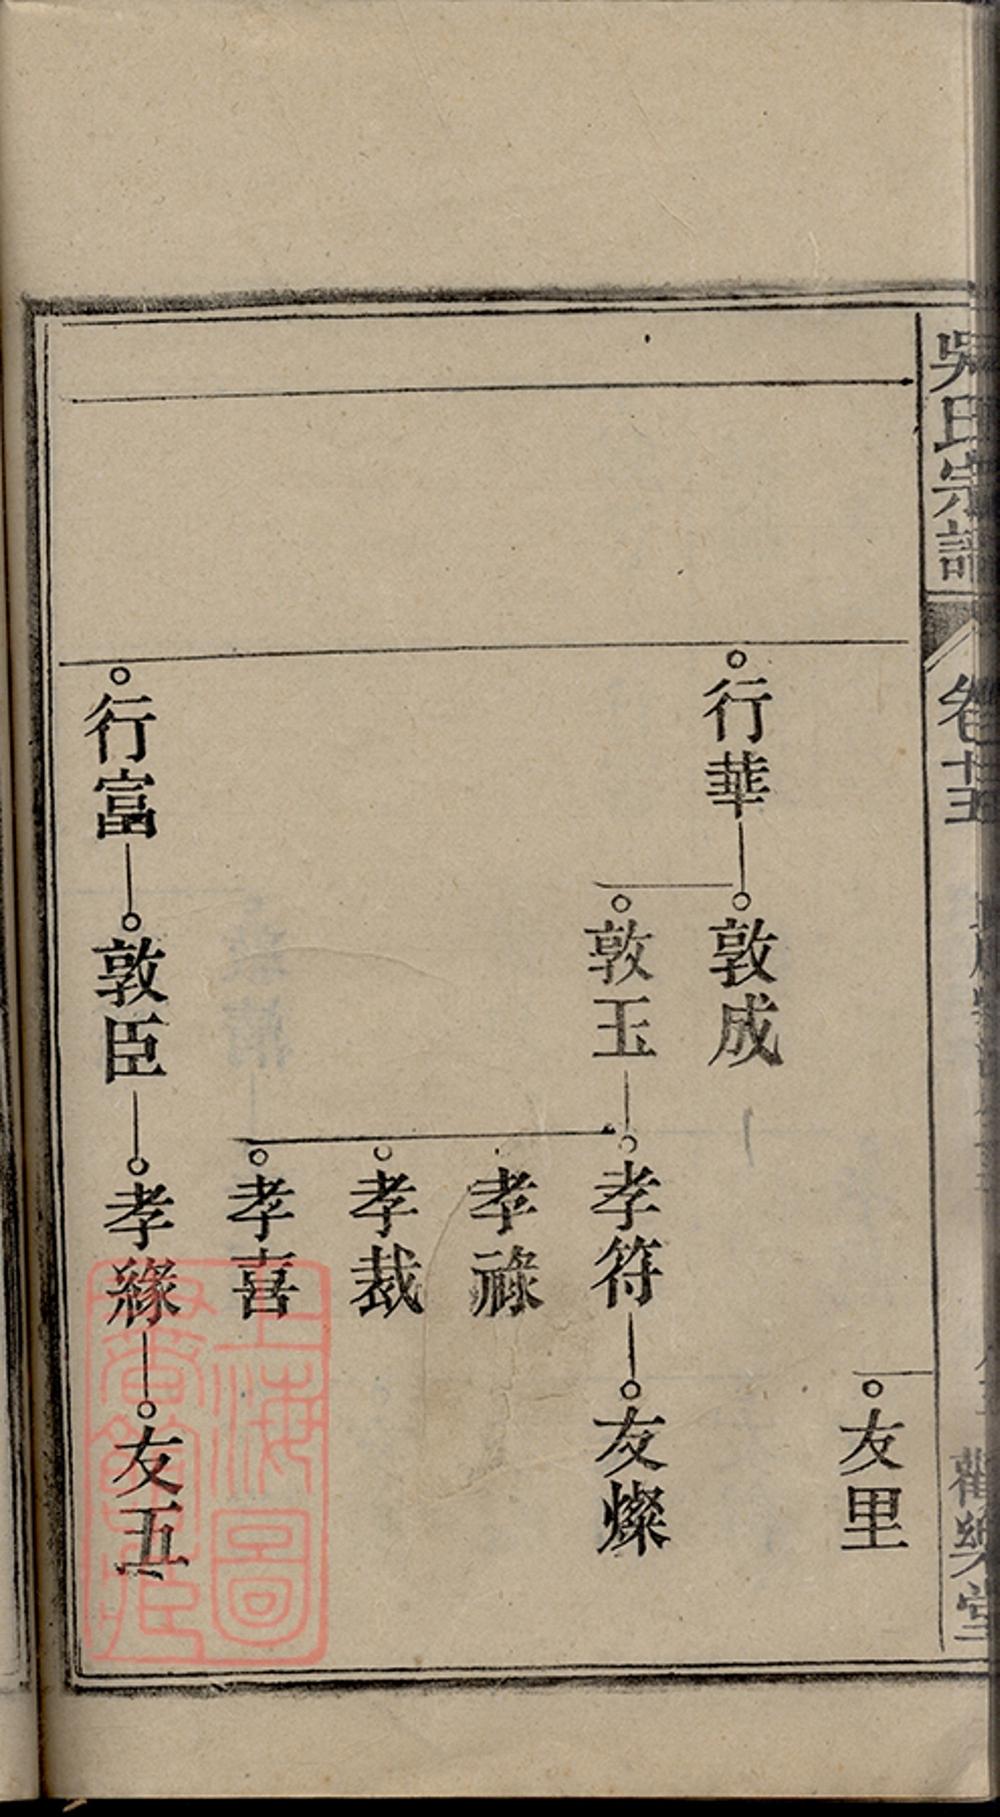 吳氏宗譜
卷十五
觀樂堂
友里
行華
敦成
敦玉
孝符
友燦
孝祿
孝裁
孝喜
行富
敦臣
孝緣
友五
上海圖
書館藏